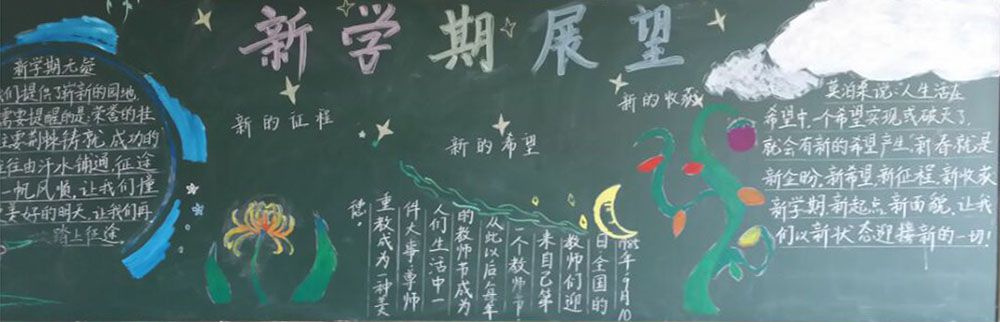 新学期展望
新学期无疑
们提供了崭新的园地,
需要提醒的是:荣誉的桂
要荆棘铸就,成功的
往由汗水铺通,征途
一帆风顺,让我们憧
美好的明天,让我们再
踏上征途.
新的征程
新的希望
新的收获
年9月10
日全国的
教师们迎
来自己第
一个教师节
从此以后每年
的教师节成为
人们生活中一
件大事。尊师
重教成为一种美
德。
英泊莱说:人生活在
希望中,一个希望实现或破灭了,
就会有新的希望产生.新春就是
新企盼,新希望,新征程,新收获
新学期,新起点,新面貌,让我
们以新状态迎接新的一切!